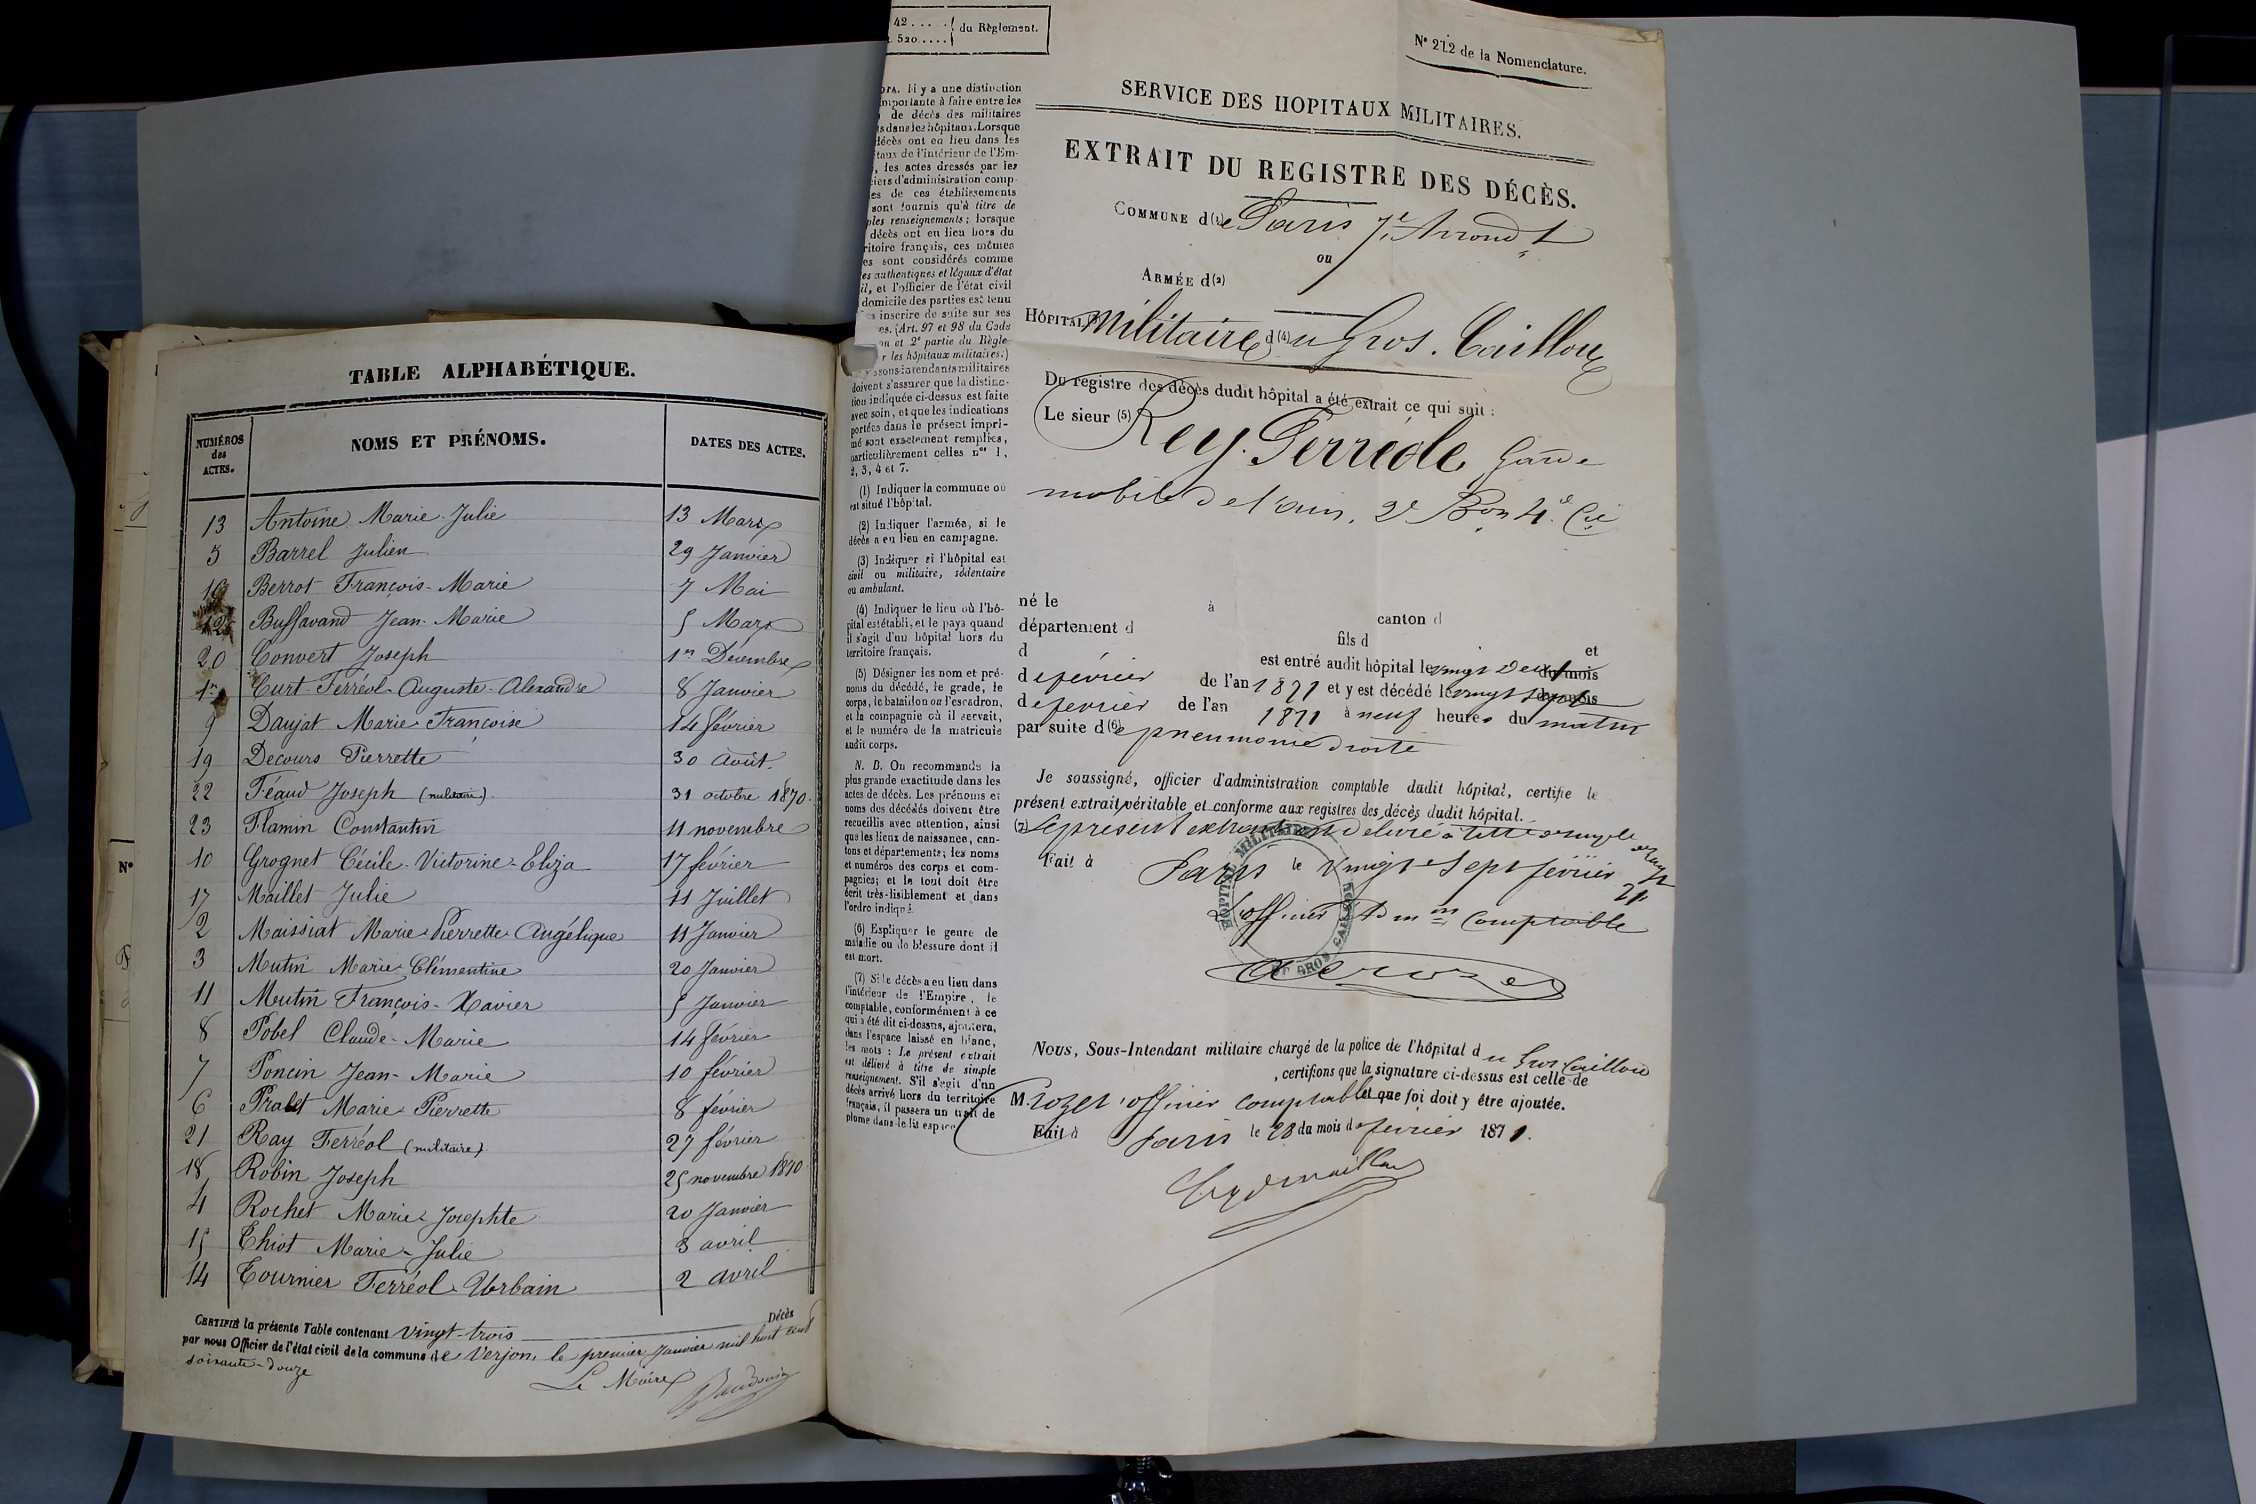 TABLE ALPHABÉTIQUE.
NUMÉROS des ACTES.
NOMS ET PRÉNOMS.
DATES DES ACTES.
13 Antoine Marie-Julie 13 Mars
5 Barrel Julien 29 Janvier
16 Berrot François-Marie 7 Mai
12 Buffavand Jean-Marie 5 Mars
20 Convert Joseph 1er Décembre
1er Curt Ferréol-Auguste-Alexandre 8 Janvier
9 Daujat Marie-Françoise 14 février
19 Decours Pierrette 30 Août.
22 Féaud Joseph (militaire) 31 octobre 1870.
23 Flamin Constantin 11 novembre
10 Grognet Cécile-Victorine-Eliza 17 février
17 Maillet Julie 11 Juillet
2 Maissiat Marie-Pierrette-Angélique 11 Janvier
3 Mutin Marie-Clémentine 20 Janvier
11 Mutin François-Xavier 5 Janvier
8 Pobel Claude-Marie 14 février
7 Poncin Jean-Marie 10 février
6 Pralet Marie-Pierrette 8 février
21 Ray Ferréol (militaire). 27 février
18 Robin Joseph 25 novembre 1870
4 Rochet Marie-Josephte 20 Janvier
15 Thiot Marie-Julie 3 avril
14 Tournier Ferréol-Urbain 2 avril
CERTIFIÉ la présente Table contenant vingt-trois Décès
par nous Officier de l'état civil de la commune de Verjon, le premier Janvier mil huit cent
soixante-douze
Le Maire
42 .....
520 ....
du Règlement.
Nº 212 de la Nomenclature.
SERVICE DES HOPITAUX MILITAIRES.
EXTRAIT DU REGISTRE DES DÉCÈS.
COMMUNE d(1)e Paris 7e Arrondt
ou
ARMÉE d(2)
HÔPITAL(3) militaire d(4)u Gros-Caillou
Du registre des décès dudit hôpital a été extrait ce qui suit :
Le sieur (5) Rey. Ferréole, Garde
mobile de l'ain, 2e Bon 4e Cie
né le à canton d
département d fils d et
d est entré audit hôpital le vingt deux du mois
de février de l'an 1871 et y est décédé le vingt sept du mois
de fevrier de l'an 1871 à neuf heures du matin
par suite d(6)e pneumonie droite
Je soussigné, officier d'administration comptable dudit hôpital, certifie le
présent extrait véritable et conforme aux registres des décès dudit hôpital.
(7) Le present extrait est delivré à titre de simple
Fait à Paris le vingt-sept février 71
L'officier Admon comptable
HÔPITAL MILITAIRE DU GROS CAILLOU
Nous, Sous-Intendant militaire chargé de la police de l'hôpital du Gros Caillou
, certifions que la signature ci-dessus est celle de
M. Crozet officier comptable et que foi doit y être ajoutée.
Fait à Paris le 28 du mois de fevrier 1871.
Il y a une distinction
importante à faire entre les
de décès des militaires
dans les hôpitaux. Lorsque
décès ont eu lieu dans les
de l'intérieur de l'Em-
, les actes dressés par les
d'administration comp-
de ces établissements
sont fournis qu'à titre de
renseignements; lorsque
décès ont eu lieu hors du
français, ces mêmes
sont considérés comme
authentiques et légaux d'état
, et l'officier de l'état civil
domicile des parties est tenu
inscrire de suite sur ses
(Art. 97 et 98 du Code
et 2e partie du Règle-
les hôpitaux militaires.)
sous-intendants militaires
doivent s'assurer que la distinc-
tion indiquée ci-dessus est faite
avec soin, et que les indications
portées dans le présent impri-
mé sont exactement remplies,
particulièrement celles nos 1,
2, 3, 4 et 7.
(1) Indiquer la commune où
est situé l'hôpital.
(2) Indiquer l'armée, si le
décès a eu lieu en campagne.
(3) Indiquer si l'hôpital est
civil ou militaire, sédentaire
ou ambulant.
(4) Indiquer le lieu où l'hô-
pital est établi, et le pays quand
il s'agit d'un hôpital hors du
territoire français.
(5) Désigner les nom et pré-
noms du décédé, le grade, le
corps, le bataillon ou l'escadron,
et la compagnie où il servait,
et le numéro de la matricule
audit corps.
N. B. On recommande la
plus grande exactitude dans les
actes de décès. Les prénoms et
noms des décédés doivent être
recueillis avec attention, ainsi
que les lieux de naissance, can-
tons et départements; les noms
et numéros des corps et com-
pagnies; et le tout doit être
écrit très-lisiblement et dans
l'ordre indiqué.
(6) Expliquer le genre de
maladie ou de blessure dont il
est mort.
(7) Si le décès a eu lieu dans
l'intérieur de l'Empire, le
comptable, conformément à ce
qui a été dit ci-dessus, ajoutera,
dans l'espace laissé en blanc,
les mots : Le présent extrait
est délivré à titre de simple
renseignement. S'il s'agit d'un
décès arrivé hors du territoire
français, il passera un trait de
plume dans ledit espace.